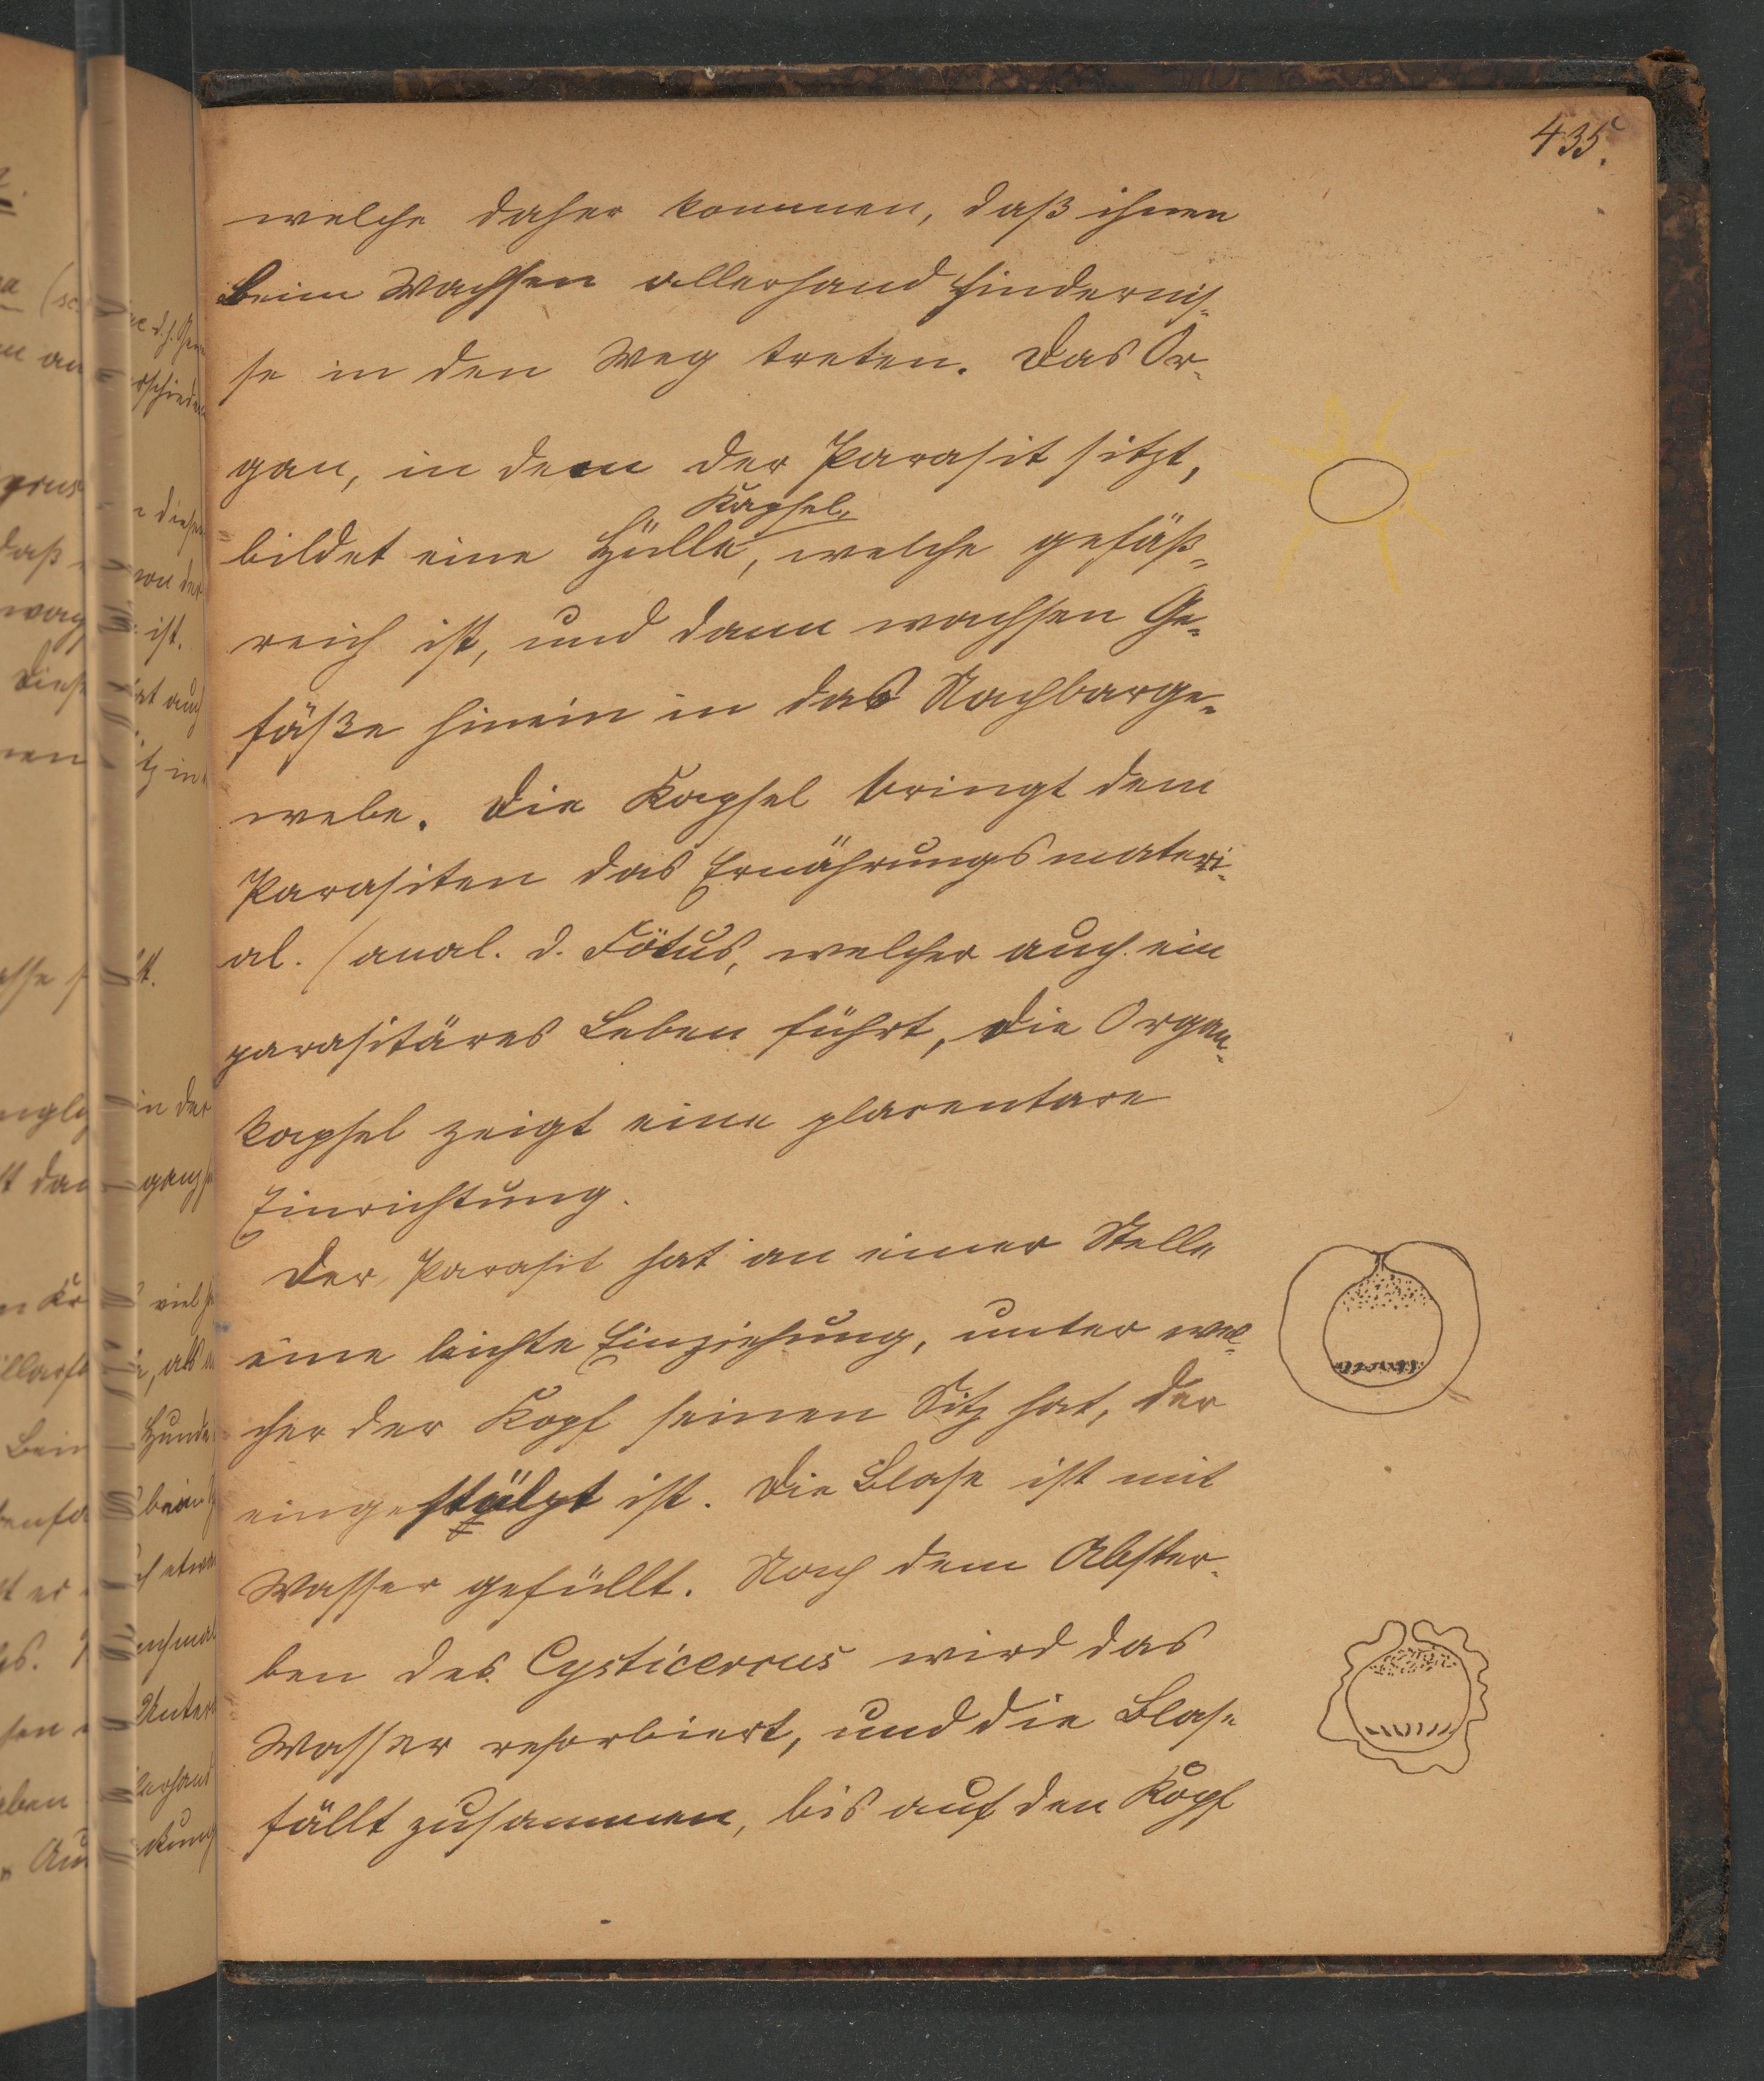 435.
welche daher kommen, daß ihnen
beim Wachsen allerhand Hindernis-
se in den Weg treten. Das Or-
gan, in dem der Parasit sitzt,
Kapsel,
bildet eine Hülle, welche gefäß-
reich ist, und dann wachsen Ge-
fäße hinein in das Nachbarge-
webe. Die Kapsel bringt dem
Parasiten das Ernährungsmateri-
al. (anal. d. Fötus, welcher auch ein
parasitäres Leben führt, die Organ-
kapsel zeigt eine placentare
Einrichtung.
Der Parasit hat an einer Stelle
eine leichte Einziehung, unter wel-
cher der Kopf seinen Sitz hat, der
eingestülpt ist. Die Blase ist mit
Wasser gefüllt. Nach dem Abster-
ben des Cysticercus wird das
Wasser resorbiert, und die Blase
fällt zusammen, bis auf den Kopf